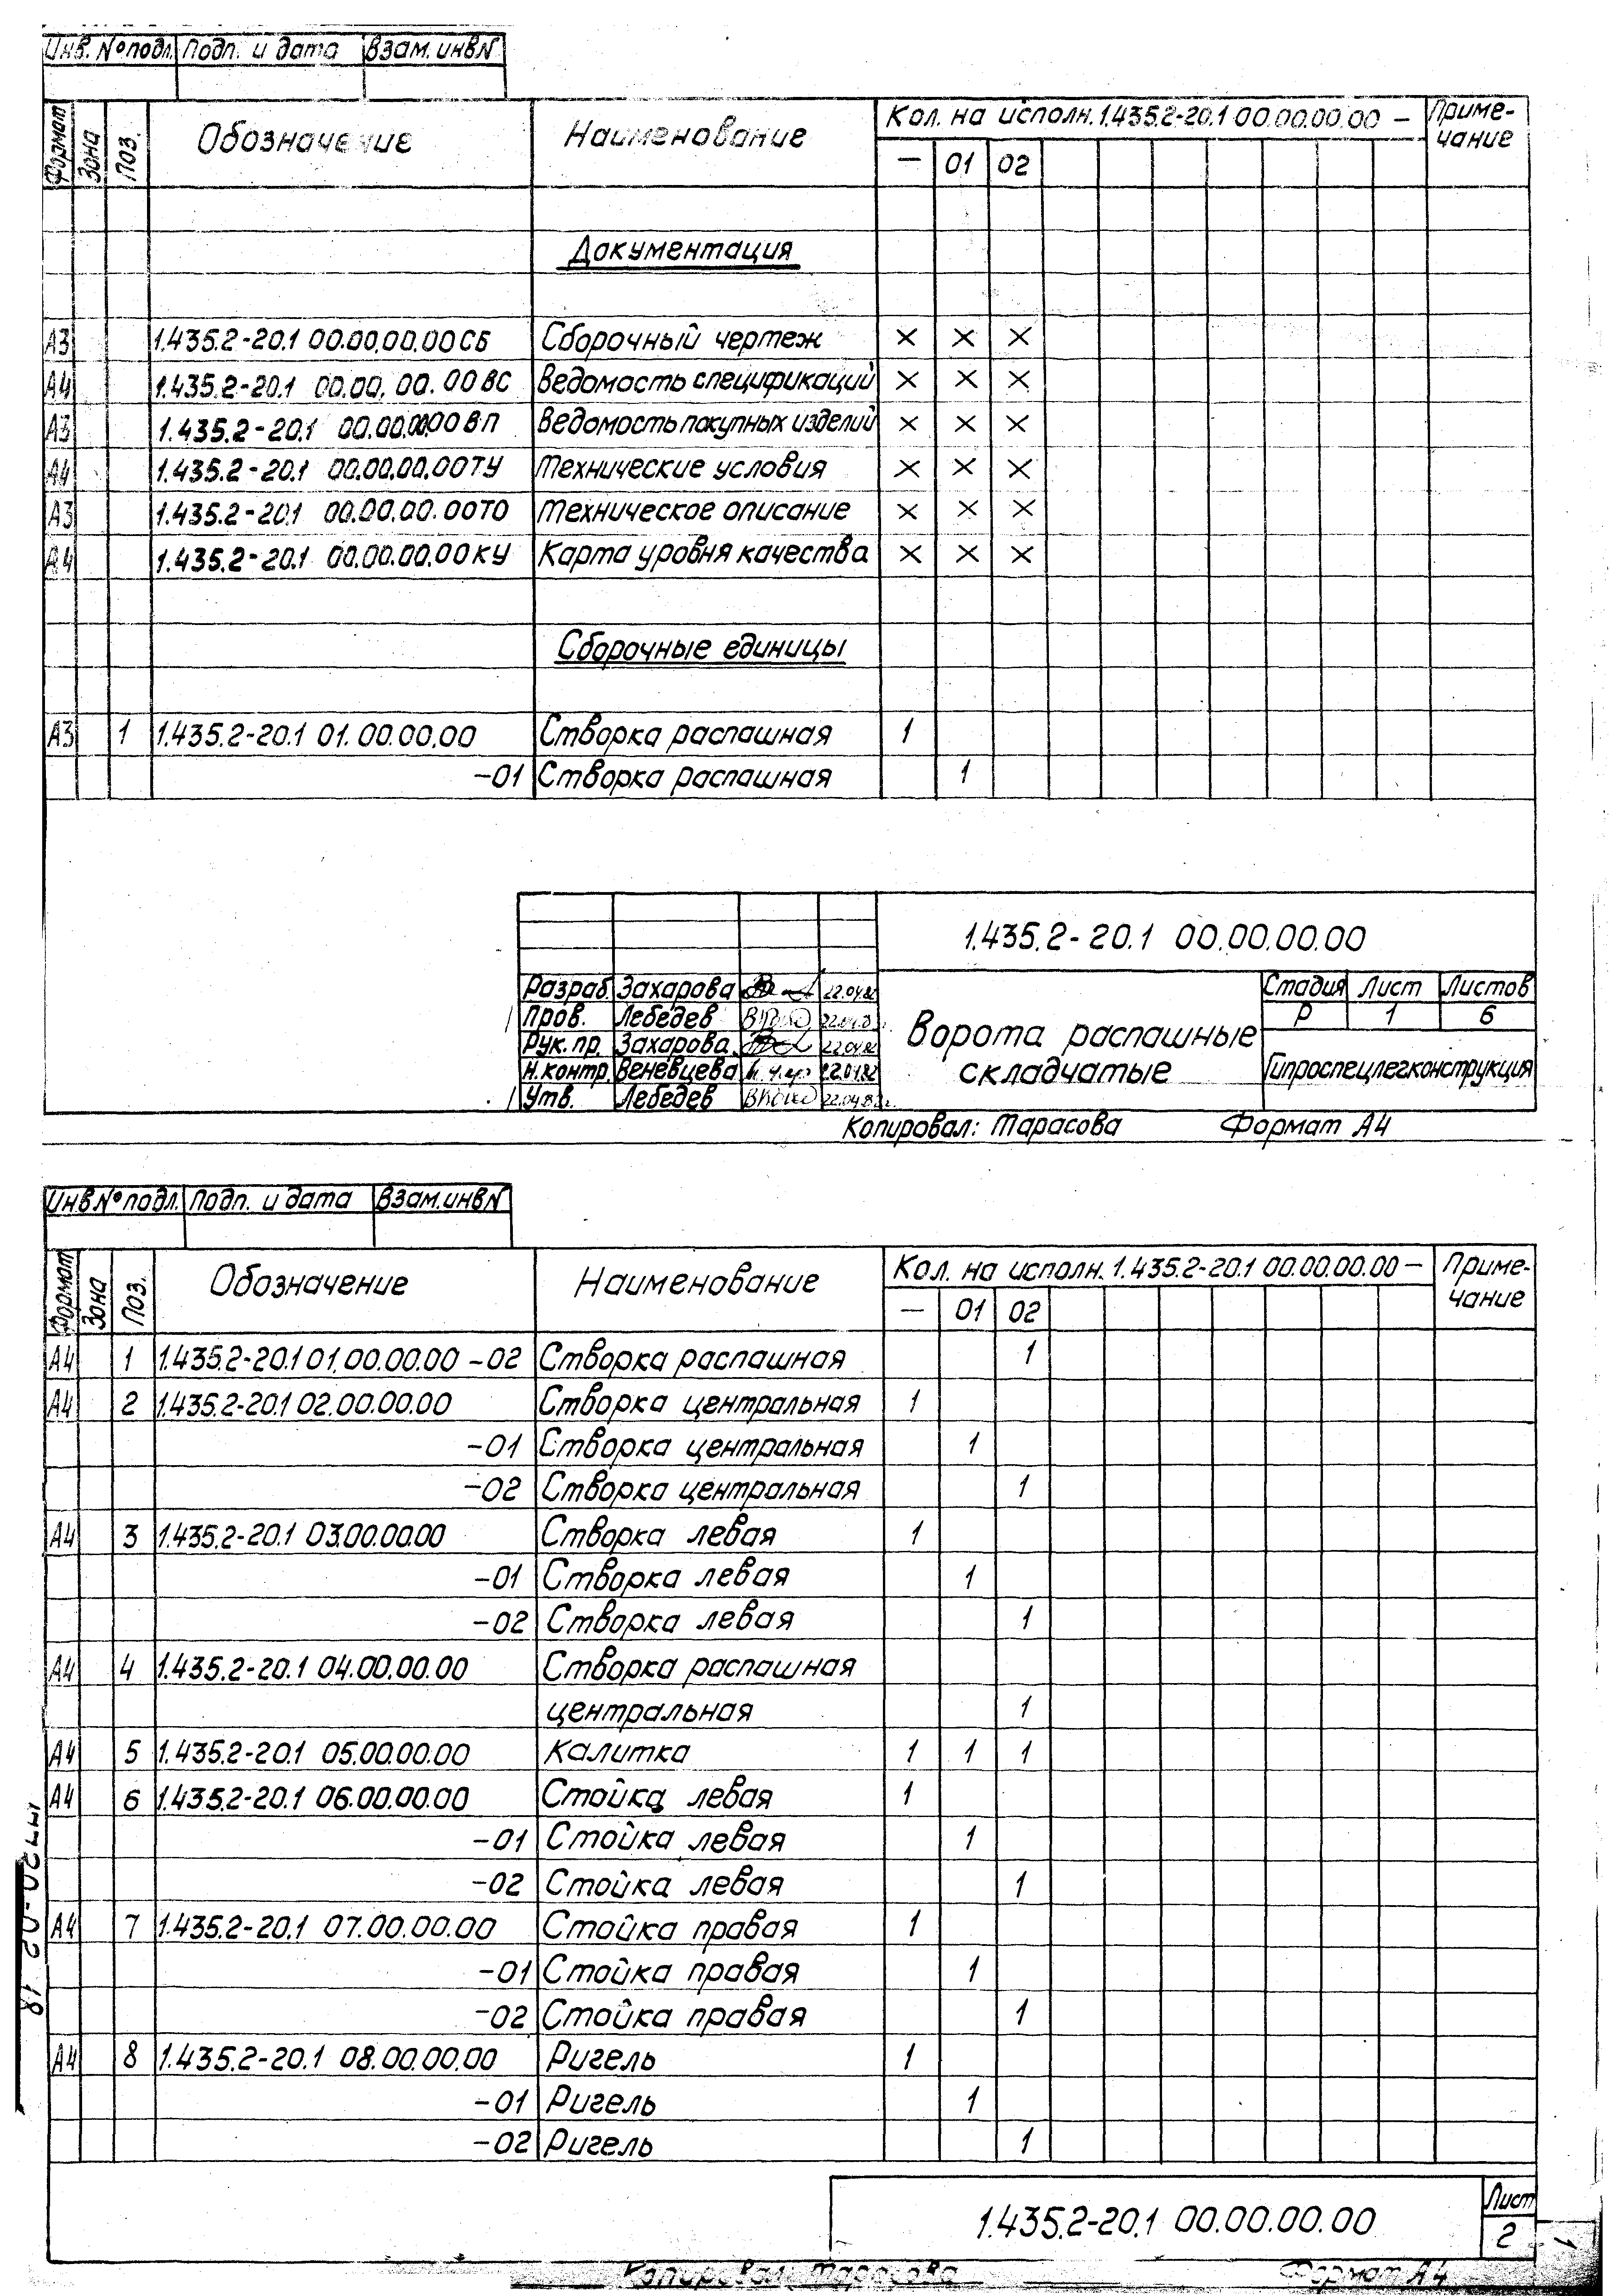 Инв. № подл. Подп. и дата Взам. инв N
Формат Зона Поз. Обозначение Наименование Кол. на исполн. 1.435.2-20.1 00.00.00.00 – Приме-
чание
– 01 02
Документация
А3 1.435.2-20.1 00.00.00.00 СБ Сборочный чертеж × × ×
А4 1.435.2-20.1 00.00.00.00 ВС Ведомость спецификаций × × ×
А3 1.435.2-20.1 00.00.00.00 ВП Ведомость покупных изделий × × ×
А4 1.435.2-20.1 00.00.00.00 ТУ Технические условия × × ×
А3 1.435.2-20.1 00.00.00.00 ТО Техническое описание × × ×
А4 1.435.2-20.1 00.00.00.00 КУ Карта уровня качества × × ×
Сборочные единицы
А3 1 1.435.2-20.1 01.00.00.00 Створка распашная 1
-01 Створка распашная 1
1.435.2-20.1 00.00.00.00
Разраб. Захарова 22.04.82
Пров. Лебедев
Рук. пр. Захарова 22.04.82
Н. контр. Веневцева
Утв. Лебедев 22.04.82г.
Ворота распашные
складчатые
Стадия Лист Листов
Р 1 6
Гипроспецлегконструкция
Копировал: Тарасова Формат А4
Инв № подл. Подп. и дата Взам. инв N
Формат Зона Поз. Обозначение Наименование Кол. на исполн. 1.435.2-20.1 00.00.00.00 – Приме-
чание
– 01 02
А4 1 1.435.2-20.1 01.00.00.00 -02 Створка распашная 1
А4 2 1.435.2-20.1 02.00.00.00 Створка центральная 1
-01 Створка центральная 1
-02 Створка центральная 1
А4 3 1.435.2-20.1 03.00.00.00 Створка левая 1
-01 Створка левая 1
-02 Створка левая 1
А4 4 1.435.2-20.1 04.00.00.00 Створка распашная
центральная 1
А4 5 1.435.2-20.1 05.00.00.00 Калитка 1 1 1
А4 6 1.435.2-20.1 06.00.00.00 Стойка левая 1
-01 Стойка левая 1
-02 Стойка левая 1
А4 7 1.435.2-20.1 07.00.00.00 Стойка правая 1
-01 Стойка правая 1
-02 Стойка правая 1
А4 8 1.435.2-20.1 08.00.00.00 Ригель 1
-01 Ригель 1
-02 Ригель 1
1.435.2-20.1 00.00.00.00
Лист
2
Копировал: Тарасова Формат А4